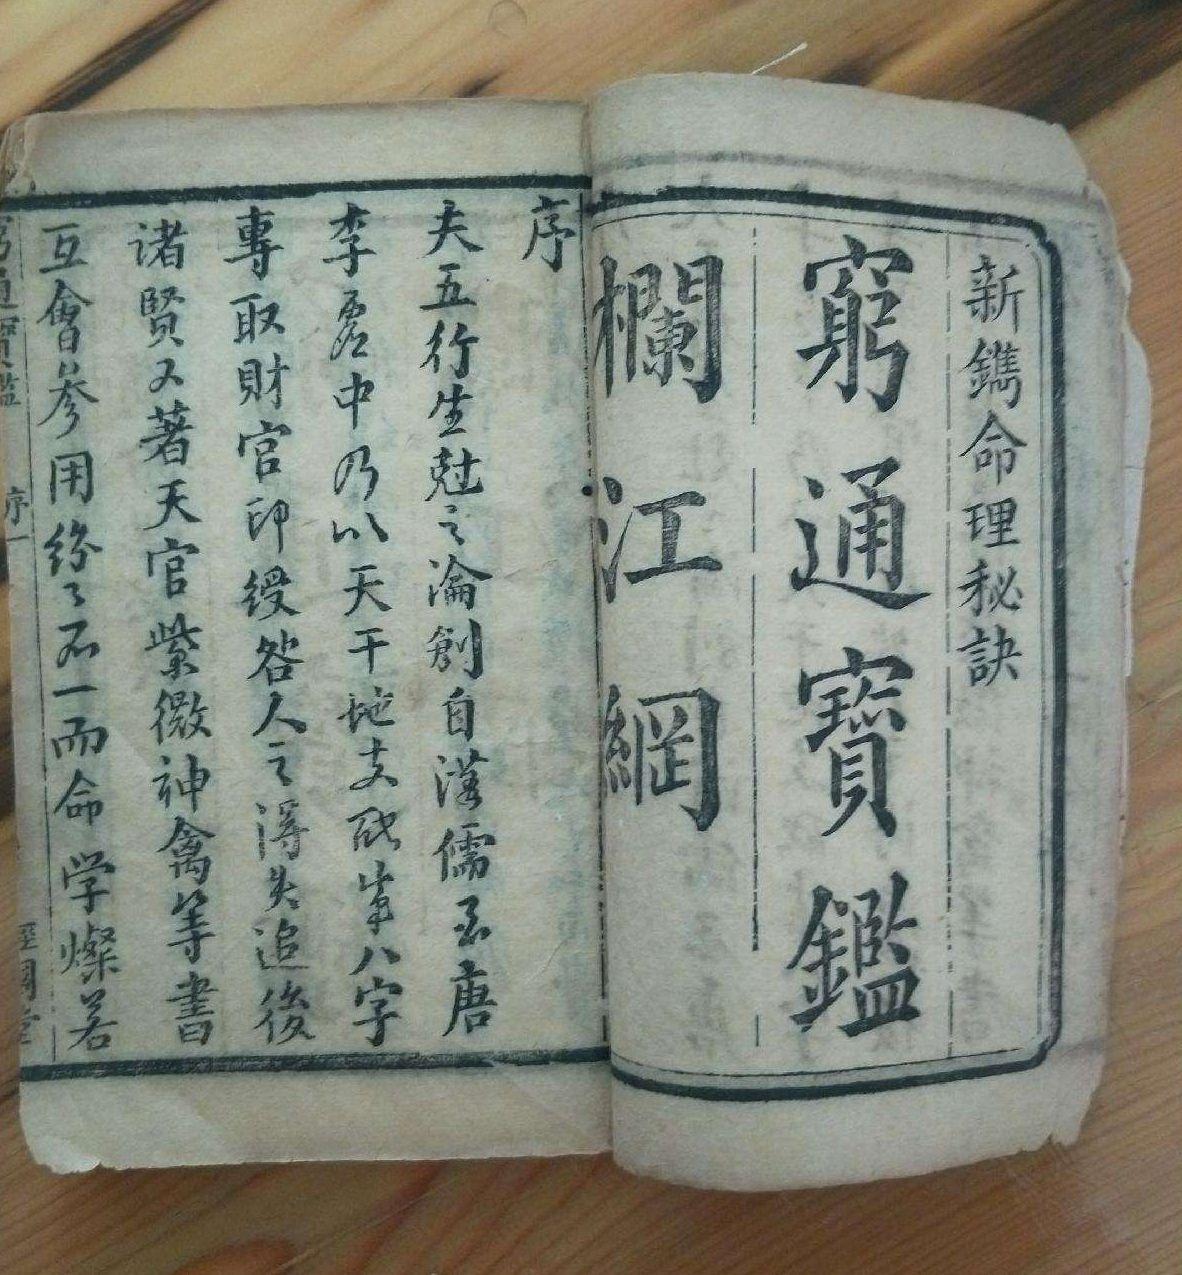 新鐫命理秘訣
窮通寶鑑
欄江網
序
夫五行生尅之瀹創自漢儒至唐
李虛中乃以天干地支配成八字
專取財官印綬咎人之得失追後
诸賢又著天官紫微神禽等書
互會參用纷〻不一而命学燦若
窮通寶鑑
序一
經國堂